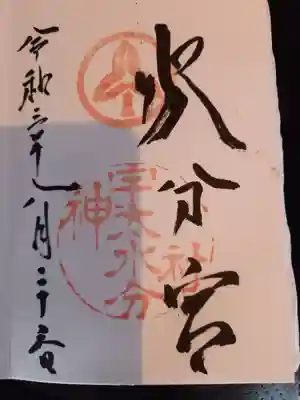 水分宮
宇太水分
神社
令和三年八月二十日